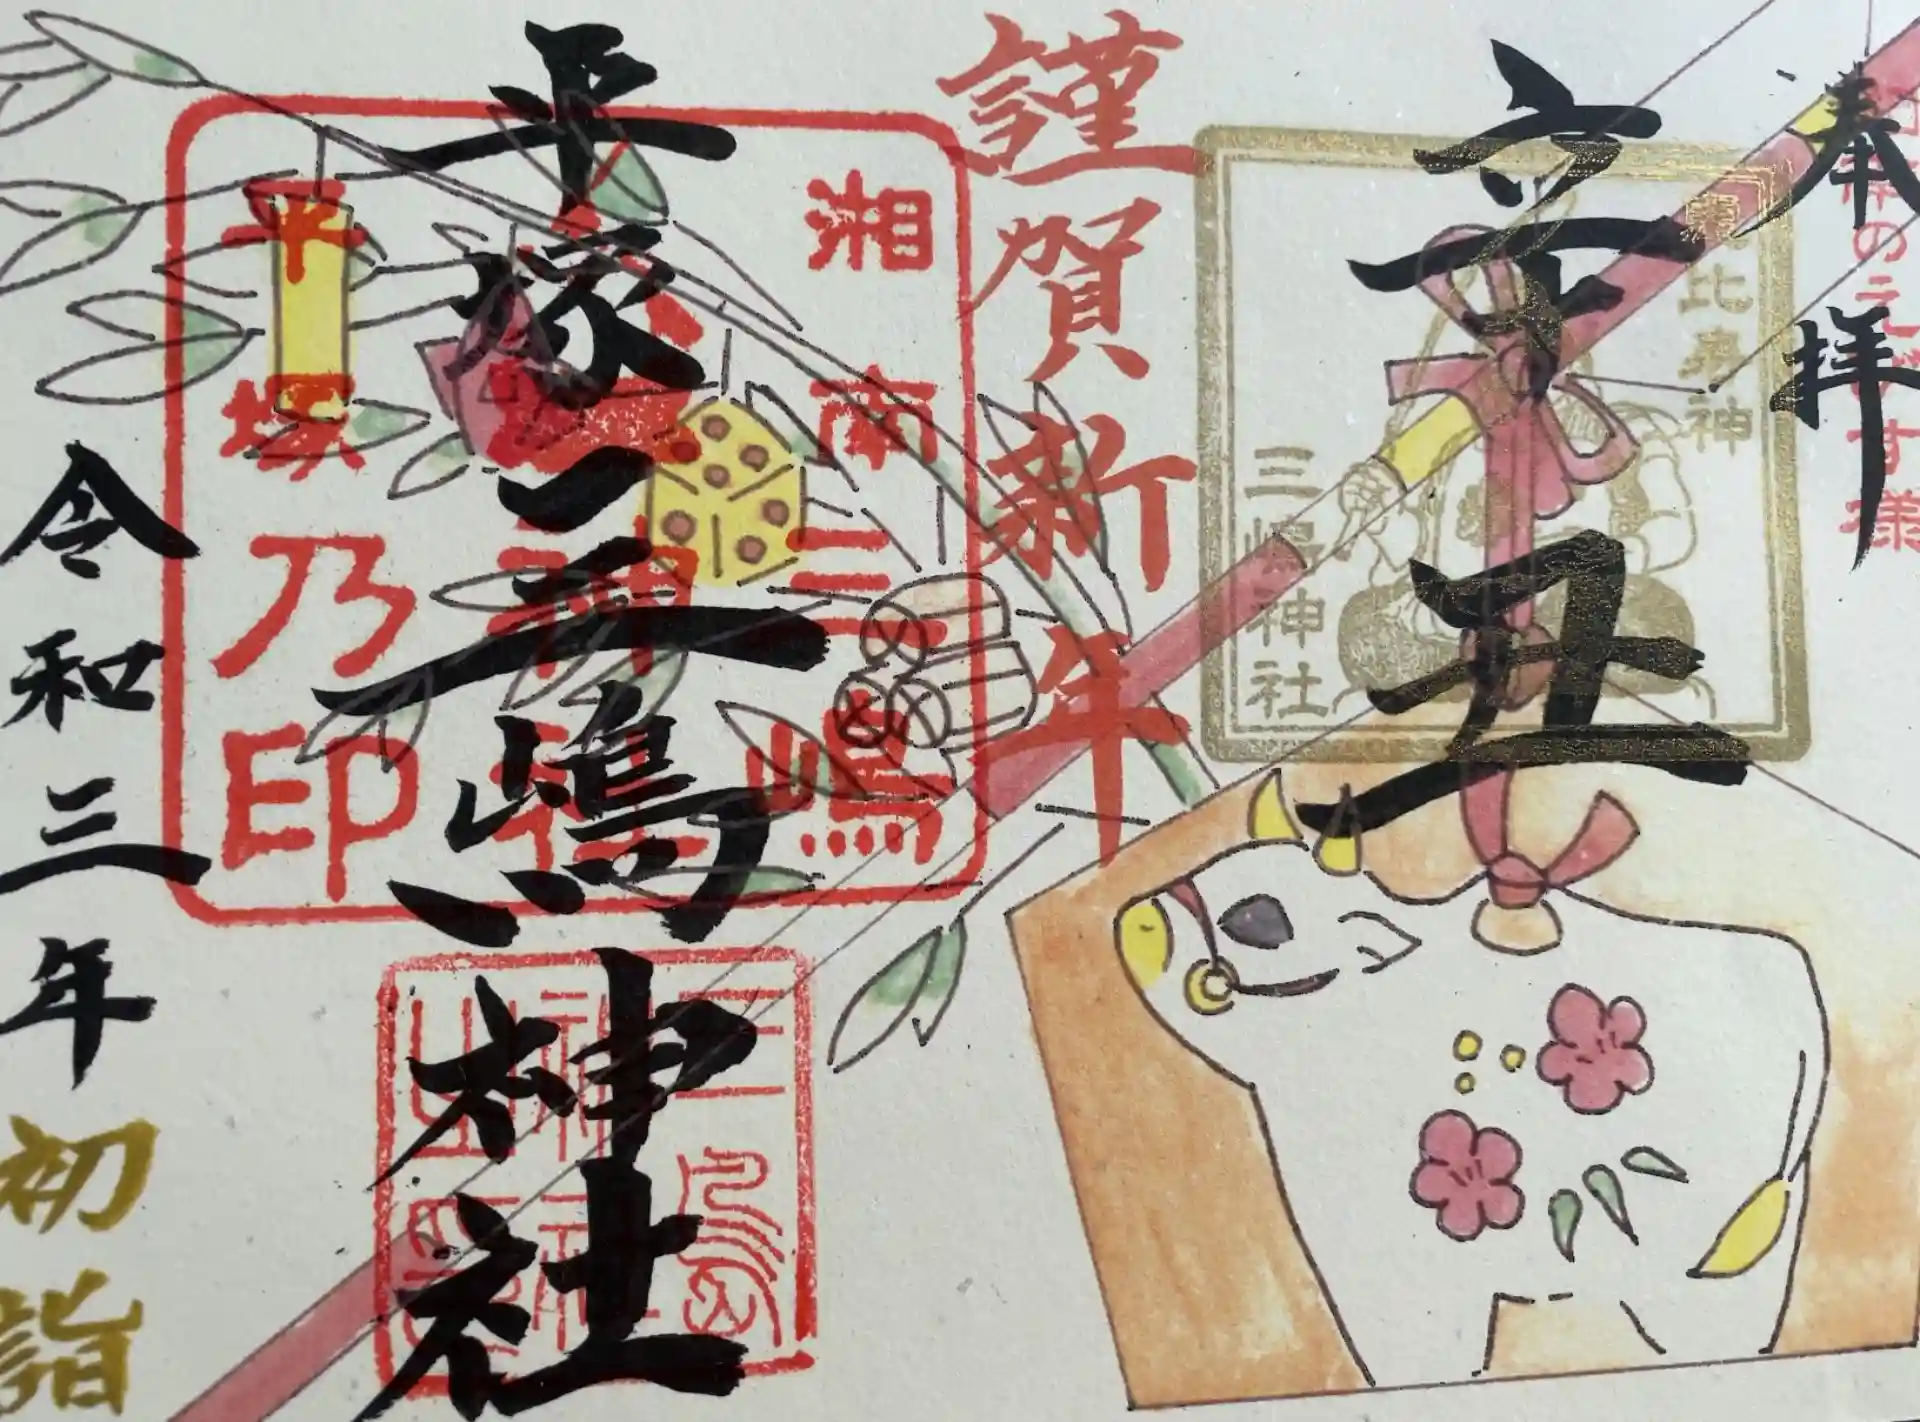 奉拝
のえびす様
辛丑
比寿神
三嶋神社
謹賀新年
湘南三嶋
神社
平塚乃印
平塚三嶋神社
令和三年
初詣